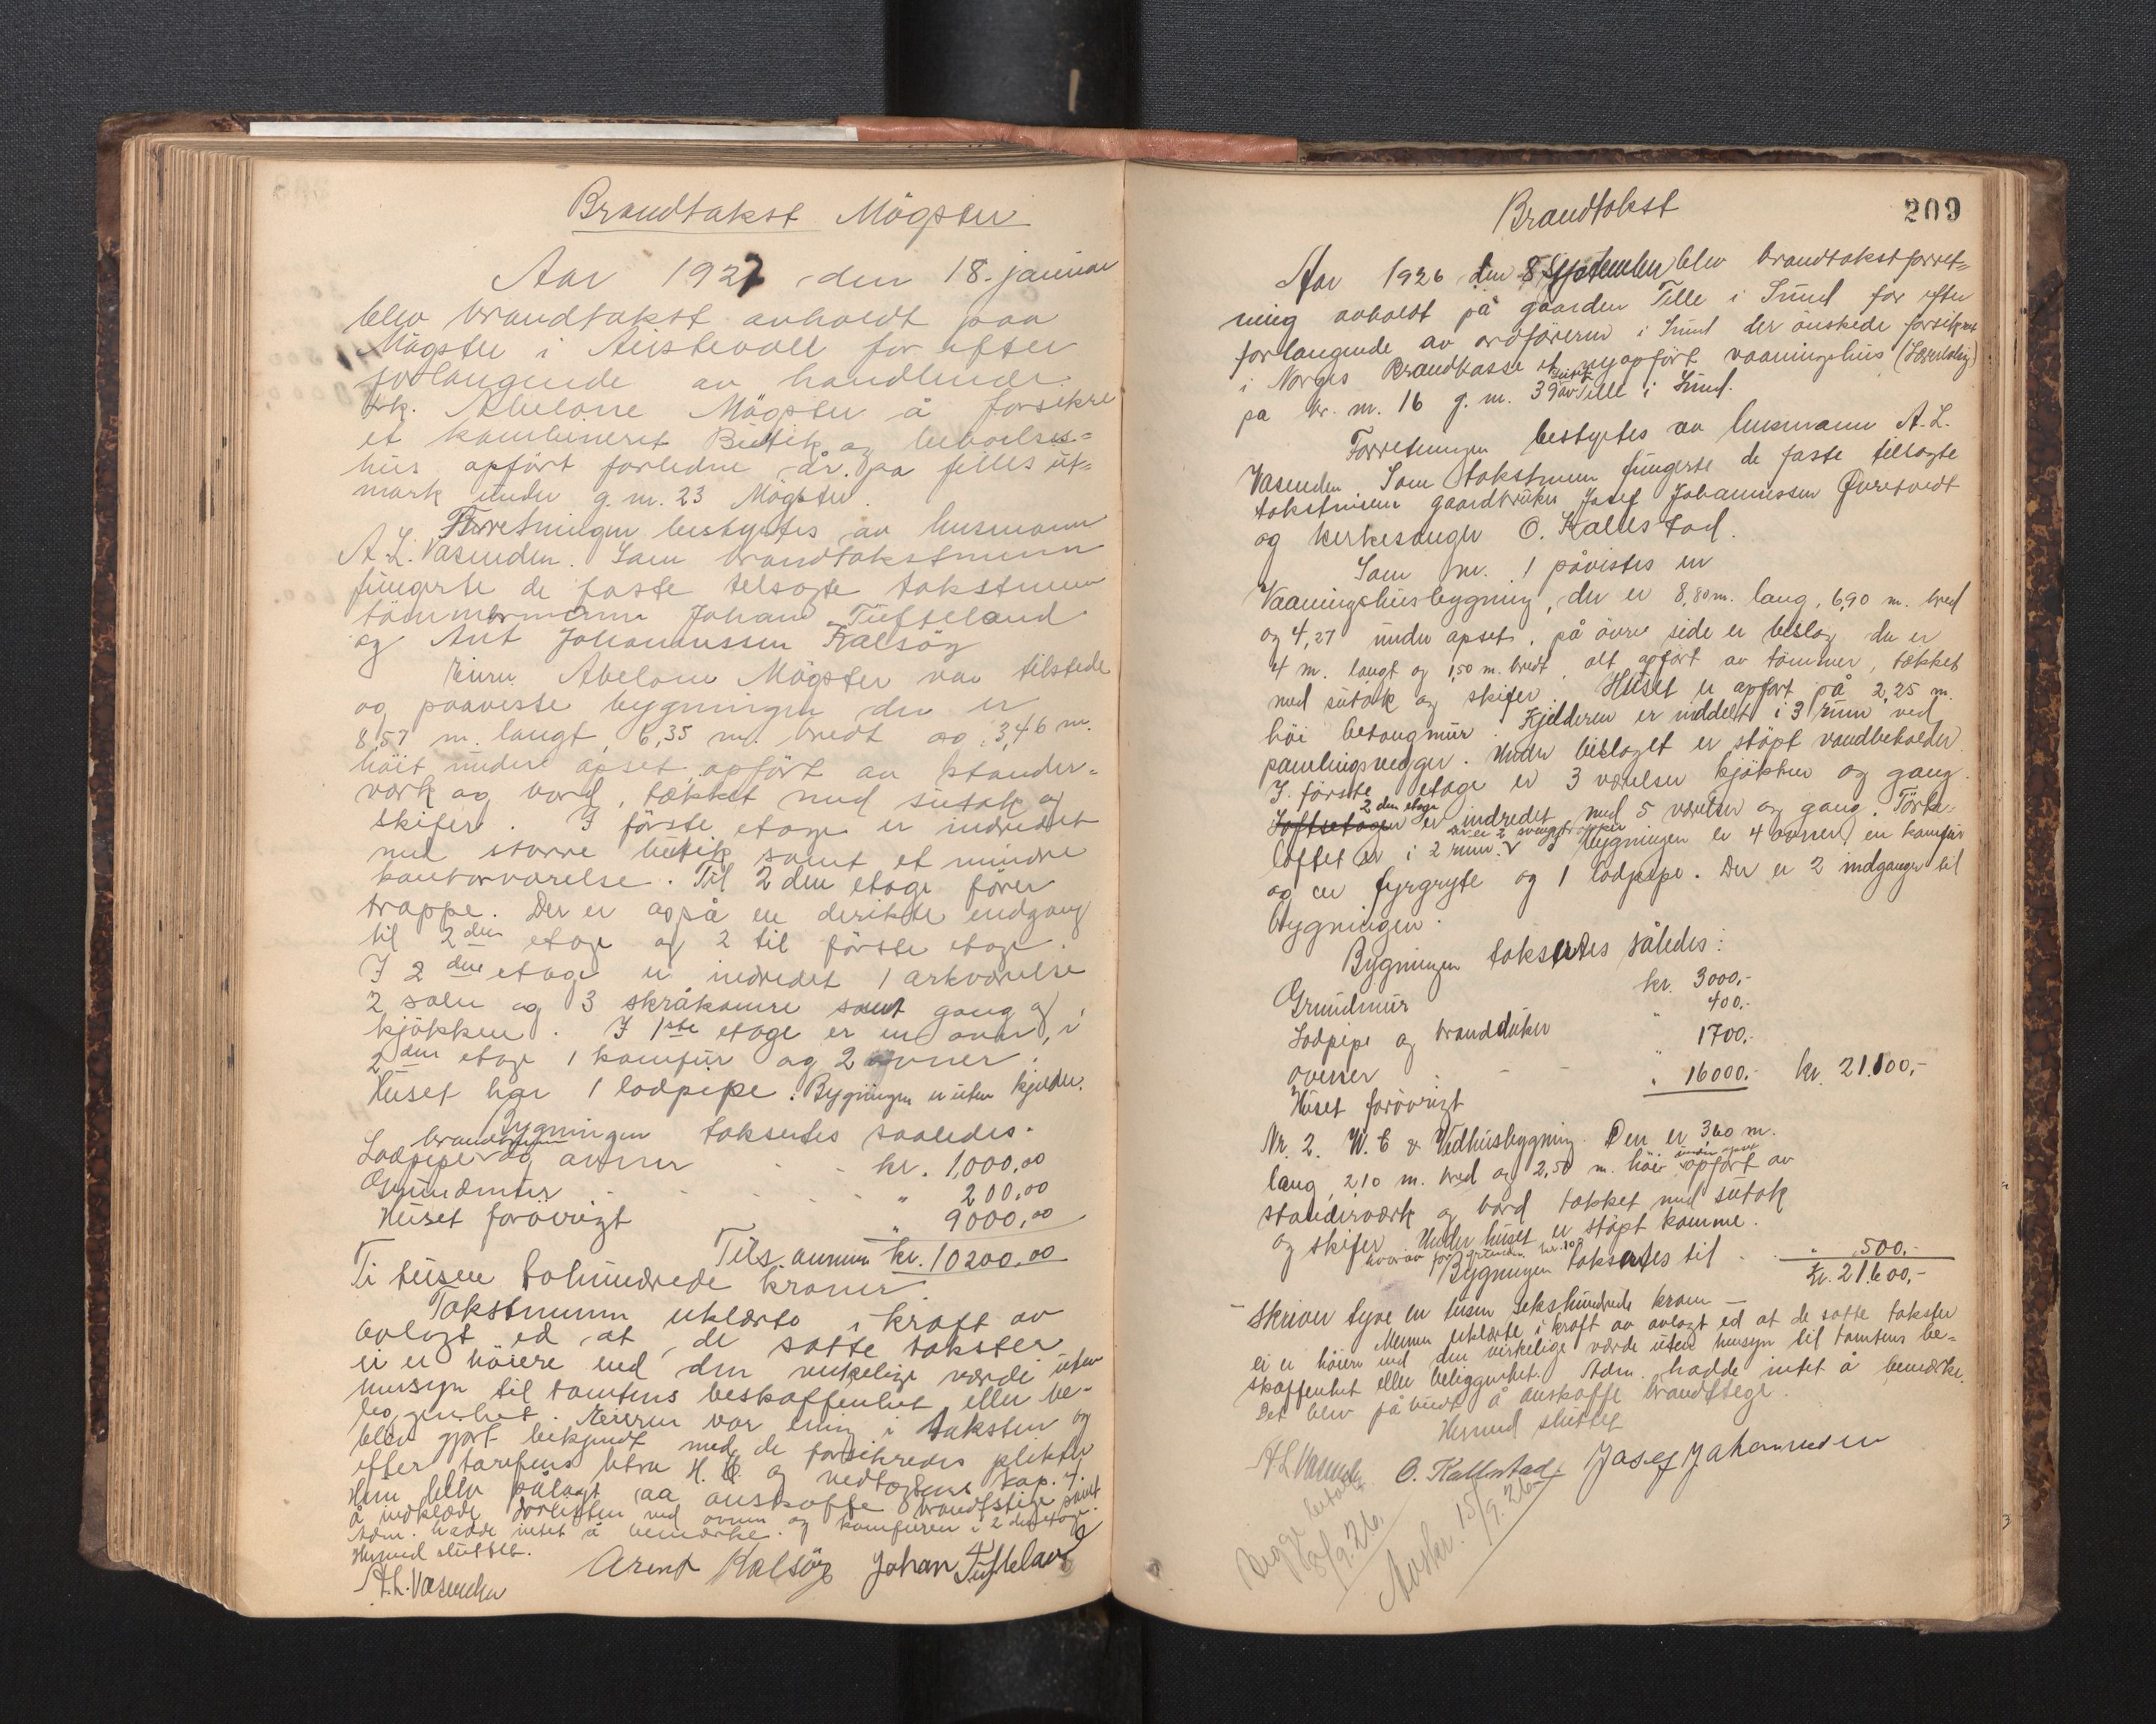 Brandtakst Mögster
Aar 1927 den 18. januar
blev brandtakst avholdt paa
Mögster i Austevoll for efter
forlangende av handlende
frk. Abelone Mögster å forsikre
et kombineret Butik og beboelses=
hus opført forledne år på felles ut=
mark under g. m. 23 Mögster.
Forretningen bestyrtes av lensmann
A. L. Vasenden. Som brandtakstmenn
fungerte de faste tilsagte takstmenn
tömmermann Johan Tufteland
og Arnt Johannessen Kalsög
Eieren Abelone Mögster var tilstede
og paaviste bygningen der er
8,57 m. langt, 6,35 m. bredt og 3,46 m.
höit under opset, opfört av stander=
verk og bord, tækket med sutak og
skifer. I förste etage er indredet
med större butik samt et mindre
kontorværelse. Til 2den etage förer
trappe. Der er også en direkte indgang
til 2den etage og 2 til förste etage.
I 2den etage er indredet 1 arkværelse
2 saler og 3 skråkamre samt gang og
kjökken. I 1ste etage er en ovn, i
2den etage 1 komfur og 2 ovner.
Huset har 1 lodpipe. Bygningen er uten kjelder.
Bygningen taksertes saaledes.
Lodpipe og ovner kr. 1,000,00
Grundmur " 200,00
Huset forövrigt " 9000,00
Tils. ammen kr. 10200,00
Ti tusen tohundrede kroner.
Takstmenn erklærte i kraft av
avlagt ed, at de satte takster
ei er höiere end den virkelige værdi uten
hensyn til tomtens beskaffenhet eller be-
liggenhet. Eieren var enig i taksten og
blev gjort bekjendt med de forsikredes plikter
efter tarifens litra H. H. og vedtægtens kap. 4.
Hun blev pålagt aa anskaffe brandstige samt
å indklæde dørlisten ved ovnen og komfuren i 2den etage.
Adm. hadde intet å bemærke.
Hermed sluttet.
A. L. Vasenden Arent Kalsög Johan Tufteland
209
Brandtakst
Aar 1926 den 8 September blev brandtakstforret=
ning avholdt på gaarden Telle i Sund for efter
forlangende av ordföreren i Sund der önskede forsikret
i Norges Brandkasse et nyopfört vaaningshus (Lærerbolig)
på br. m. 16 g. m. 39 av Telle i Sund.
Forretningen bestyrtes av lensmann A. L.
Vasenden. Som takstmenn fungerte de faste tilsagte
takstmenn gaardbruker Josef Johannessen Øvretvedt
og kirkesanger O. Kallestad.
Som nr. 1 påvistes en
Vaaningshusbygning, der er 8,80 m. lang, 6,90 m. bred
og 4,27 under opset, på övre side er beslag der er
4 m. langt og 1,50 m. bredt, alt opfört av tömmer, tækket
med sutak og skifer. Huset er opfört på 2,25 m.
höi betongmur. Kjelderen er inddelt i 3 rum ved
panelingsvegger. Under bislaget er stöpt vandbeholder.
I förste etage er 3 værelser kjökken og gang.
2den etage
Loftsetagen er indredet med 5 værelser og gang. Törke-
der er 2 svingtrapper
loftet er i 2 rum. I bygningen er 4 ovner en komfur
og en fyrgryte og 1 lodpipe. Der er 2 indganger til
bygningen.
Bygningen taksertes således:
Grundmur kr. 3000,-
Lodpipe og branddæker " 400,-
ovner " 1700,-
Huset forövrigt " 16000,- kr. 21.100,-
Nr. 2. W. C & Vedhusbygning. Den er 3,60 m.
under opset
lang, 2,10 m. bred og 2,50 m. höi opfört av
standerværk og bord tækket med sutak
og skifer. Under huset er stöpt komme.
Bygningen taksertes til " 500,-
Kr. 21.600,-
- Skriver tyve en tusen sekshundrede kroner -
Mennene erklærte i kraft av avlagt ed at de satte takster
ei er höiere end den virkelige værde uten hensyn til tomtens be=
skaffenhet eller beliggenhet. Adm. hadde intet å bemærke.
Det blev påbudt å anskaffe brandstege.
Hermed sluttet
A L Vasenden O. Kallestad. Josef Johannessen
Begge betalt
15/9.26.
Avskr. 15/9.26